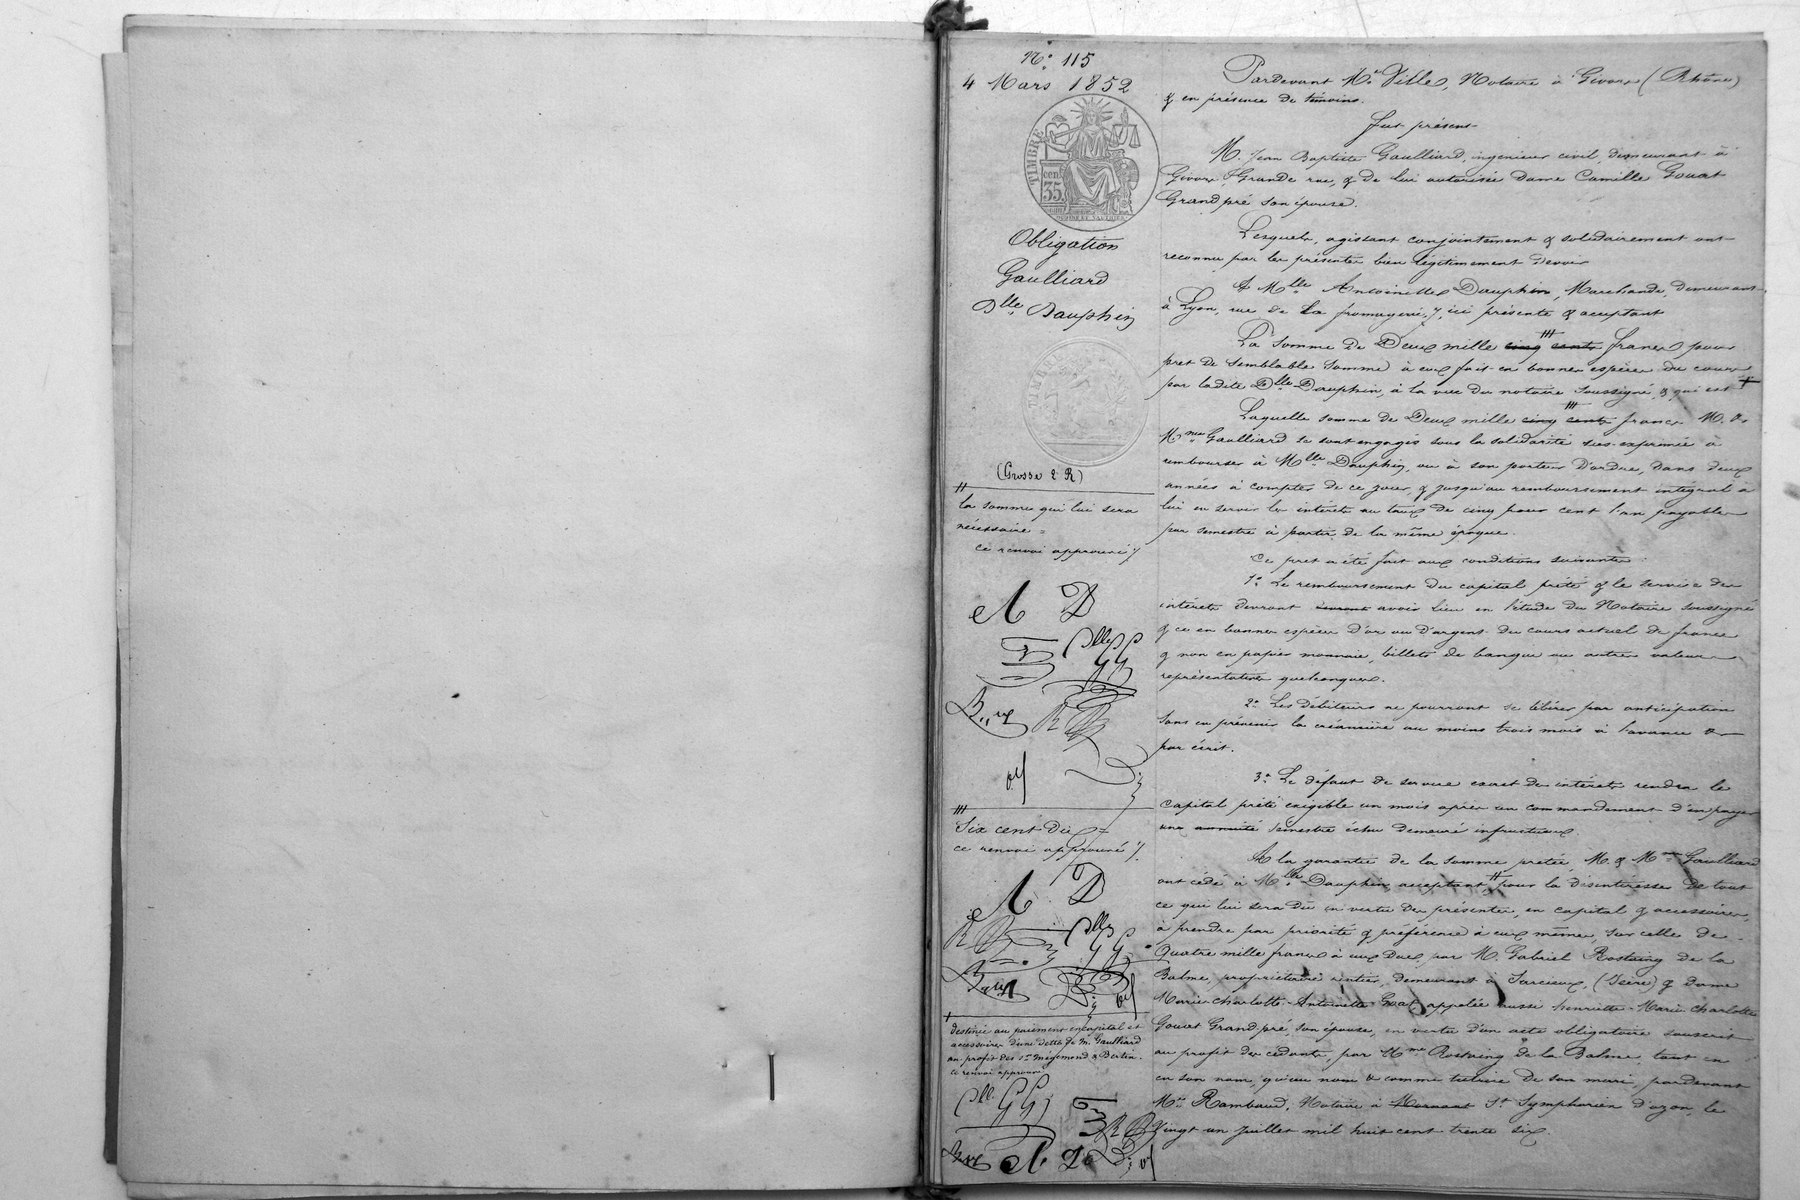 N° 115
4 Mars 1852
TIMBRE
cent.
35
Obligation
Gaulliard
Dlle Dauphin
(Grosse 2 R)
la somme qui lui sera
nécessaire =
ce renvoi approuvé ./.
A D
Six cent dix =
ce renvoi approuvé ./.
A D
destinée au paiement en capital et
accessoires d'une dette de M. Gaulliard
au profit des srs Mégemond & Bertin.
ce renvoi approuvé
Pardevant Me Ville, Notaire à Givors (Rhône)
& en présence de témoins.
Fut présent
M. Jean Baptiste Gaulliard, ingénieur civil, demeurant à
Givors, Grande rue, & de lui autorisée Dame Camille Gouat
Grandpré son épouse.
Lesquels, agissant conjointement & solidairement ont
reconnu par les présentes bien légitimement devoir
A Mlle Antoinette Dauphin, Marchande, demeurant
à Lyon, rue de la fromagerie, 7, ici présente & acceptant
La somme de Deux mille cinq cents francs pour
pret de semblable somme à eux fait en bonnes espèces du cours
par ladite Dlle Dauphin, à la vue du notaire soussigné, & qui est +
Laquelle somme de Deux mille cinq cents francs M. &
Mme Gaulliard se sont engagés sous la solidarité sus-exprimée à
rembourser à Mlle Dauphin, ou à son porteur d'ordre, dans deux
années à compter de ce jour, & jusqu'au remboursement intégral à
lui en servir les intérêts au taux de cinq pour cent l'an payables
par semestre à partir de la même époque.
Ce pret a été fait aux conditions suivantes :
1° Le remboursement du capital prêté & le service des
intérêts devront devront avoir lieu en l'étude du Notaire soussigné
& ce en bonnes espèces d'or ou d'argent du cours actuel de france
& non en papier monnaie, billets de banque ou autres valeurs
représentatives quelconques.
2° Les Débiteurs ne pourront se libérer par anticipation
sans en prévenir la créancière au moins trois mois à l'avance &
par écrit.
3° Le défaut de service exact des intérêts rendra le
capital prêté exigible un mois après un commandement d'en payer
une annuité semestre échu demeuré infructueux.
A la garantie de la somme pretée, M. & Mme Gaulliard
ont cédé à Mlle Dauphin, acceptant, pour la désintéresser de tout
ce qui lui sera dû en vertu des présentes, en capital & accessoires,
à prendre par priorité & préférence à eux même, sur celle de
Quatre mille francs à eux due, par M. Gabriel Rostaing de la
Balme, propriétaire rentier, demeurant à Sarcieux, (Isère) & dame
Marie-Charlotte-Antoinette Gouat appelée aussi henriette-Marie Charlotte
Gouat Grandpré son épouse, en vertu d'un acte obligatoire souscrit
au profit des cédants, par Mme Rostaing de la Balme, tant en
en son nom, qu'au nom & comme tutrice de son mari, pardevant
Me Rambaud, Notaire à Mornant St Symphorien d'ozon, le
Vingt un juillet mil huit cent trente six.